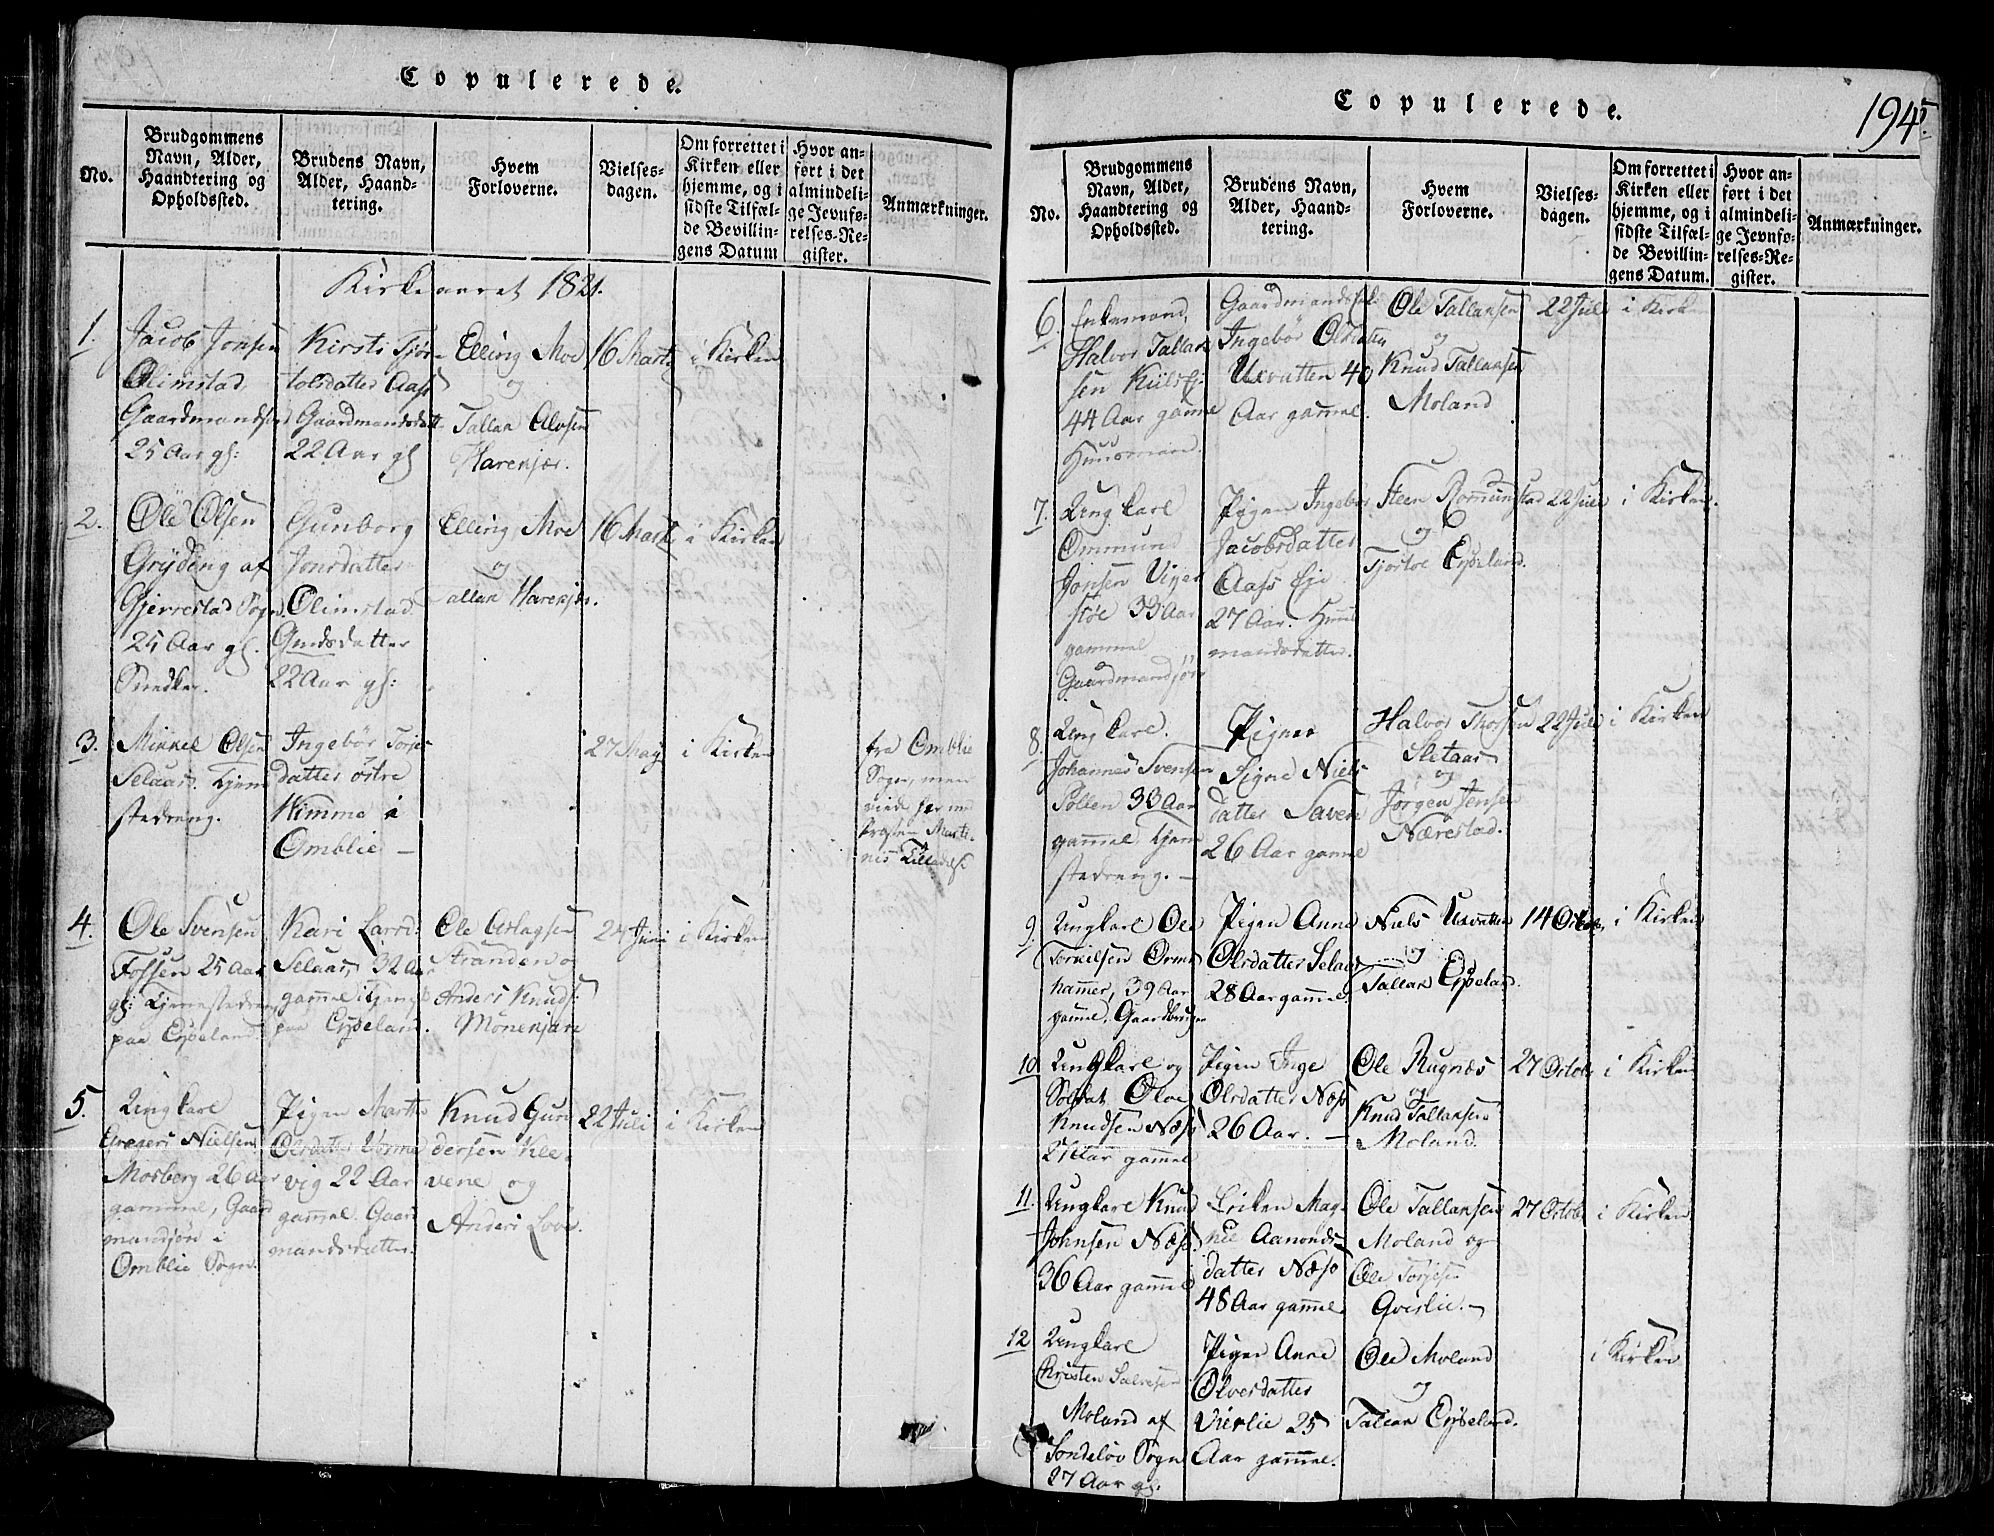 Copulerede.
No.
Brudgommens
Navn, Alder,
Haandtering og
Opholdssted.
Brudens Navn,
Alder, Haand-
tering.
Hvem
Forloverne.
Vielses-
dagen.
Om forrettet i
Kirken eller
hjemme, og i
sidste Tilfæl-
de Bevillin-
gens Datum
Hvor an-
ført i det
almindeli-
ge Jevnfø-
relses-Re-
gister.
Anmærkninger.
Kirkeaaret 1821.
1.
Jacob Jonsen
Olimstad
Gaardmandsøn
25 Aar gl:
Kirsti Tjøs-
tolsdatter Aas
Gaardmandsdatt
22 Aar gl
Elling Moe
og
Tallak Alvsen
Harekjær.
16 Marts
i Kirken
2.
Ole Olsen
Gryting af
Gjerrestad Sogn
25 Aar gl.
Snedker.
Gunborg
Jonsdatter
Olimstad
Gmdsdatter
22 Aar gl:
Elling Moe
og
Tallak Harekjær.
16 Marts
i Kirken
3.
Mikkel Olsen
Selaas. Tjene
stedreng.
Ingebør Torjes
datter østre
Kimme i
Omblie —
27 May
i Kirken
fra Omblie
Sogn, men
viede her m
Præsten Marti-
nis Tilladelse
4.
Ole Svensen
Fossen 25 Aar
gl: Tjenestedreng
paa Eppeland
Kari Larsd:
Selaas, 32 Aar
gammel
paa Eppeland.
Ole Aslagsen
Stranden og
Anders Knuds:
Mønekjær
24 Juni
i Kirken
5.
Ungkarl
Gregers Nielsen
Mosberg 26 Aar
gammel, Gaard
mandsøn i
Omblie Sogn.
Pigen Marthe
Olsdatter Værme
vig 22 Aar
gammel. Gaard
mandsdatter.
Knud Gun
dersen Kle-
vene og
Anders Løve.
22 Juli
i Kirken
Copulerede.
194
No.
Brudgommens
Navn, Alder,
Haandtering og
Opholdssted.
Brudens Navn,
Alder, Haand-
tering.
Hvem
Forloverne.
Vielses-
dagen.
Om forrettet i
Kirken eller
hjemme, og i
sidste Tilfæl-
de Bevillin-
gens Datum.
Hvor an-
ført i det
almindeli-
ge Jevnfø-
relses-Re-
gister.
Anmærkninger.
6.
Enkemand,
Halvor Tallak
sen Kiils Ej:
44 Aar gamle
Huusmand.
Gaardmands
Ingebør Olsdatter
Usvatten 40
Aar gammel.
Ole Tallaksen
og
Knud Tallaksen
Moland
22 Juli
i Kirken
7.
Ungkarl
Ommund
Jonsen Viger
støe 33 Aar
gammel
Gaardmandsøn
Pigen Ingebør
Jacobsdatter
Aas Eje
27 Aar. Huus
mandsdatter.
Steen Romundstad
og
Tjøstov Eppeland.
22 Juli
i Kirken.
8.
Ungkarl.
Johannes Svensen
Sollen 33 Aar
gammel Tjene
stedreng. —
Pigen
Signe Niels
datter Saven
26 Aar gamle
Halvor Thorsen
Sletaas
og
Jørgen Jensen
Nærestad.
22 Juli
i Kirken
9.
Ungkarl Ole
Torkelsen Orme
hammer, 39 Aar
gammel, Gaardbruger
Pigen Anne
Olsdatter Selaas
28 Aar gammel.
Niels Usvatten
og
Tallak Eppeland.
14 Octob.
i Kirken
10
Ungkarl og
Soldat Olve
Knudsen Næs
27 Aar gammel
Pigen Inge
Olsdatter Næs
26 Aar. —
Ole Rugnæs
og
Knud Tallaksen
Moland.
27 Octob
i Kirken
11.
Ungkarl Knud
Johnsen Næs
36 Aar gammel
Enken Mag-
nil Aanonds-
datter Næs
48 Aar gammel
Ole Tallaksen
Moland og
Ole Torjesen
Qverlie. —
27 Octob
i Kirken
12
Ungkarl
Christen Salvesen
Moland af
Søndeløv Sogn
27 Aar gl.
Pigen Anne
Olvesdatter
Vierlie 25
Aar gammel.
Ole Moland
og
Tallak Eppeland.
i Kirken